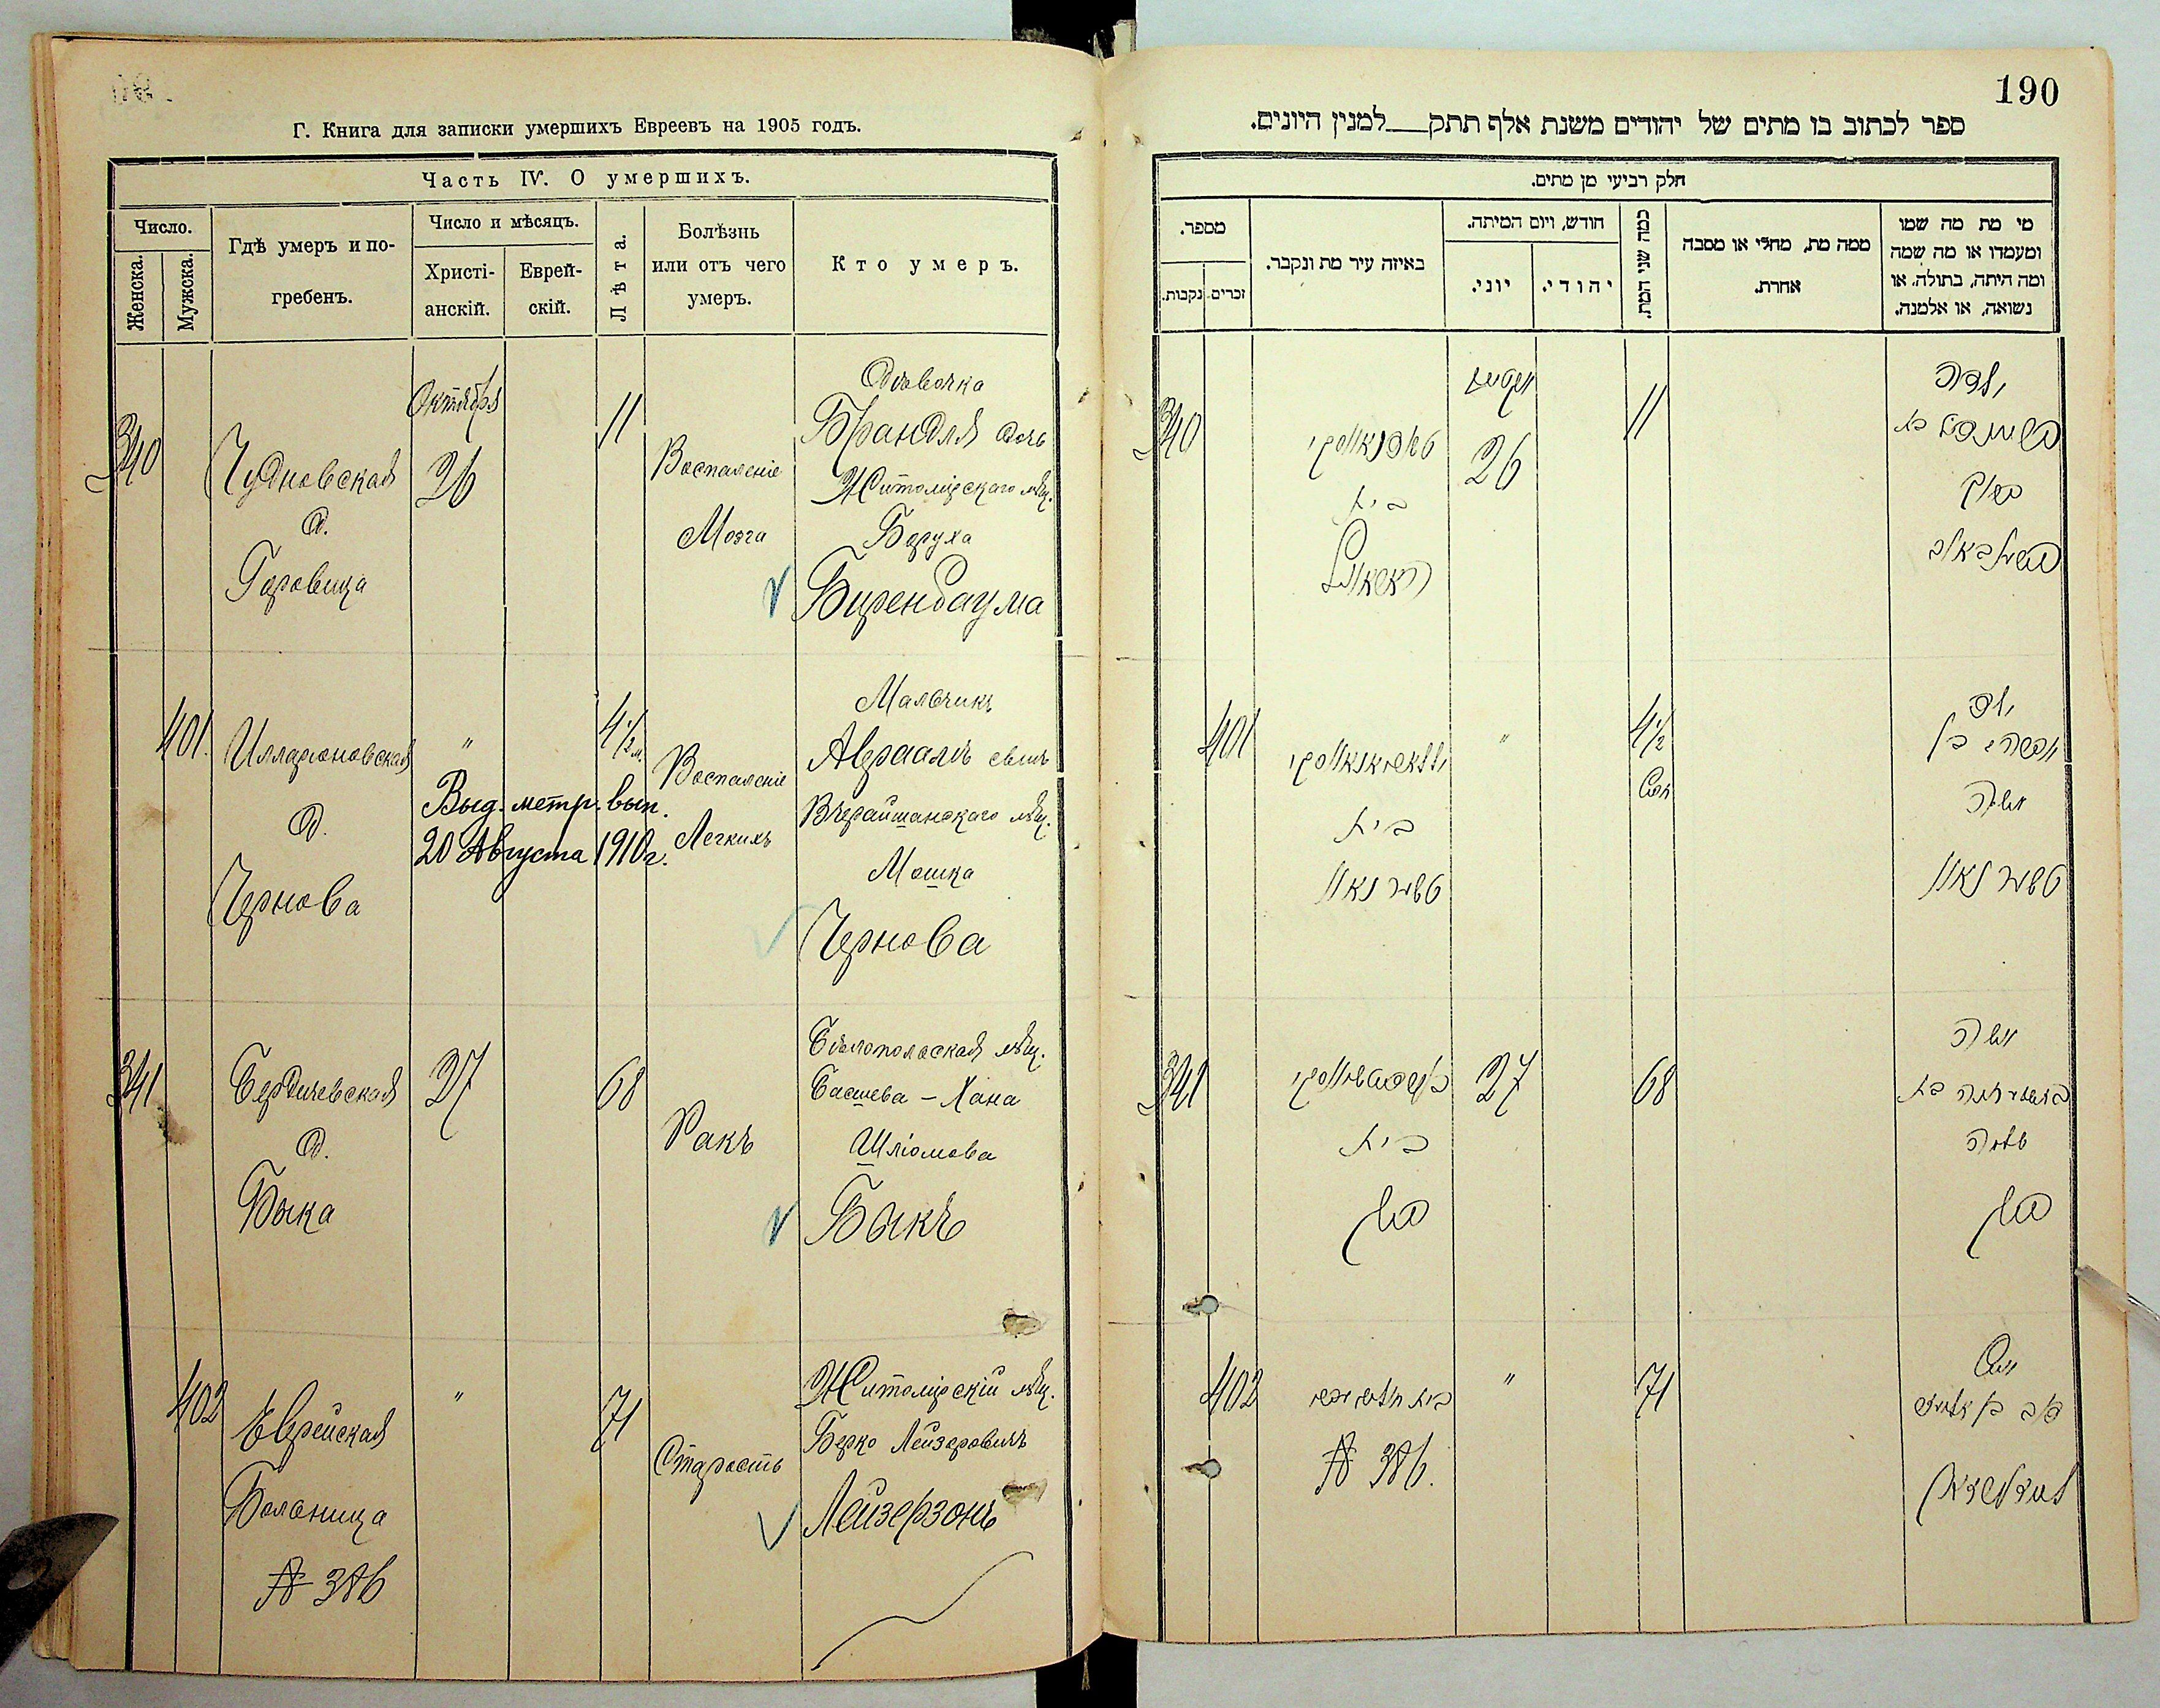 Г. Книга для записки умершихъ Евреевъ на 1905 годъ.
Часть IV. О умершихъ.
Число.
Женска.
Мужска.
Гдѣ умеръ и по-
гребенъ.
Число и мѣсяцъ.
Христі-
анскій.
Еврей-
скій.
Лѣта.
Болѣзнь
или отъ чего
умеръ.
Кто умеръ.
340
Чудновская
д.
Горовица
Октября
26
11
Воспаленіе
Мозга
Дѣвочка
Брандля дочь
Житомірскаго мѣщ.
Боруха
Биренбаума
401.
Илларіоновская
д.
Чернова
"
Выд. метр. вып.
20 Августа 1910 г.
4 1/2 м.
Воспаленіе
Легкихъ
Мальчикъ
Авраамъ сынъ
Вчерайшанскаго мѣщ.
Мошка
Чернова
341
Бердичевская
д.
Быка
27
68
Ракъ
Бѣлопольская мѣщ.
Басшева - Хана
Шліомова
Быкъ
402
Еврейская
Больница
№ 386
"
71
Старость
Житомірскій мѣщ.
Берко Лейзеровичъ
Лейзерзонъ
190
ספר לכתוב בו מתים של יהודים משנת אלף תתק__למנין היונים.
חלק רביעי מן מתים.
מספר.
נקבות.
זכרים.
באיזה עיר מת ונקבר.
חודש, ויום המיתה.
יוני.
יהודי.
כמה שני המת.
ממה מת, מחלי או מסבה
אחרת.
מי מת מה שמו
ומעמדו או מה שמה
ומה היתה, בתולה, או
נשואה, או אלמנה.
340
בית
26
11
ילדה
ברוך
401
בית
טשערנאוו
"
4 1/2
חדש
ילד
אברהם בן
משה
טשערנאוו
341
בית
ביק
27
68
אשה
שלמה
ביק
402
№ 386.
"
71
איש